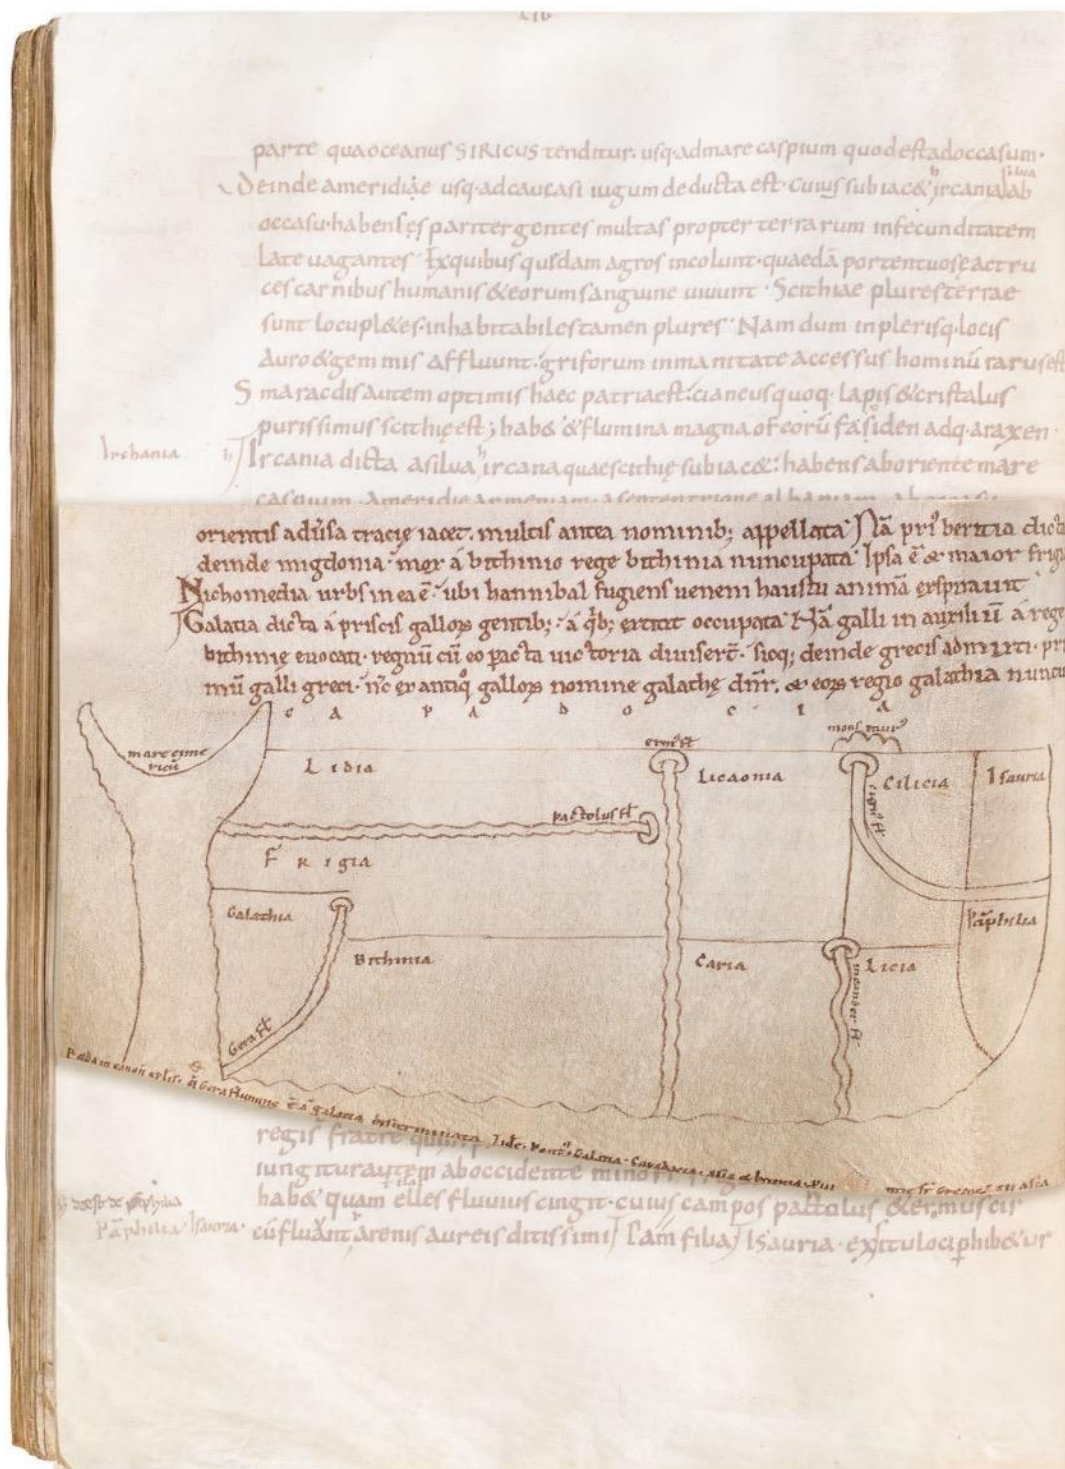 parte qua oceanus SIRICUS tenditur. usq· ad mare caspium quod est ad occasum·
Deinde a meridiae usq· ad caucasi iugum deducta est· cuius subiac& hircania silua ab
occasu· habens es pariter gentes multas propter terrarum infecunditatem
late uagantes· Ex quibus quędam agros incolunt· quaedā portentuose ac tru
ces carnibus humanis & eorum sanguine uiuunt· Scithiae plures terrae
sunt locupl&es· inhabitabiles tamen plures· Nam dum in plerisq· locis
auro & gemmis affluunt· griforum inmanitate accessus hominū rarus est
Smaracdis autem optimis haec patria est· cianeus quoq· lapis & cristalus
purissimus scithię est; hab& & flumina magna ofcorū fasiden adq· araxen·
Irchania
Ircania dicta a silua hircana quae scithię subiac&· habens ab oriente mare
caspium· A meridie armeniam· a septentrione albaniam· ab occasu
orientis aduersa tracię iacet. multis antea nominib; appellata· Nā pri' beritia dicta
deinde migdonia· mox á bithinio rege bithinia nuncupata· Ipsa ē & maior frigia
Nichomedia urbs in ea ē· ubi hannibal fugiens ueneni haustu animā exspirauit
Galatia dicta á priscis galloꝝ gentib; á qib; extitit occupata· Nā galli in auxiliū á rege
bithinię euocati· regnū cū eo pacta uictoria diuisert̄· sicq; deinde grecis admixti· pri
mū galli greci· nc̄ ex antiq galloꝝ nomine galathę dnr̄· & eoꝝ regio galathia nuncu
C A P A D O C I A
mare cime
ricū
Lidia
ermꝰ fl̄
Licaonia
mons taurꝰ
Cilicia
Isauria
cignꝰ fl̄
pactolus fl̄
Frigia
Galathia
Bithinia
Caria
meander fl̄
Licia
Pāphilia
Gera fl̄
Gera flumine ē a galatia disterminata
regis fratre
iungitur autem ab occidente minori
hab& quam elles fluuius cingit· cuius campos pactolus & ermus eis
Pāphilia Isauria·
cū fluant arenis aureis ditissimi Pamfilia Isauria· ex situ loci phib&ur